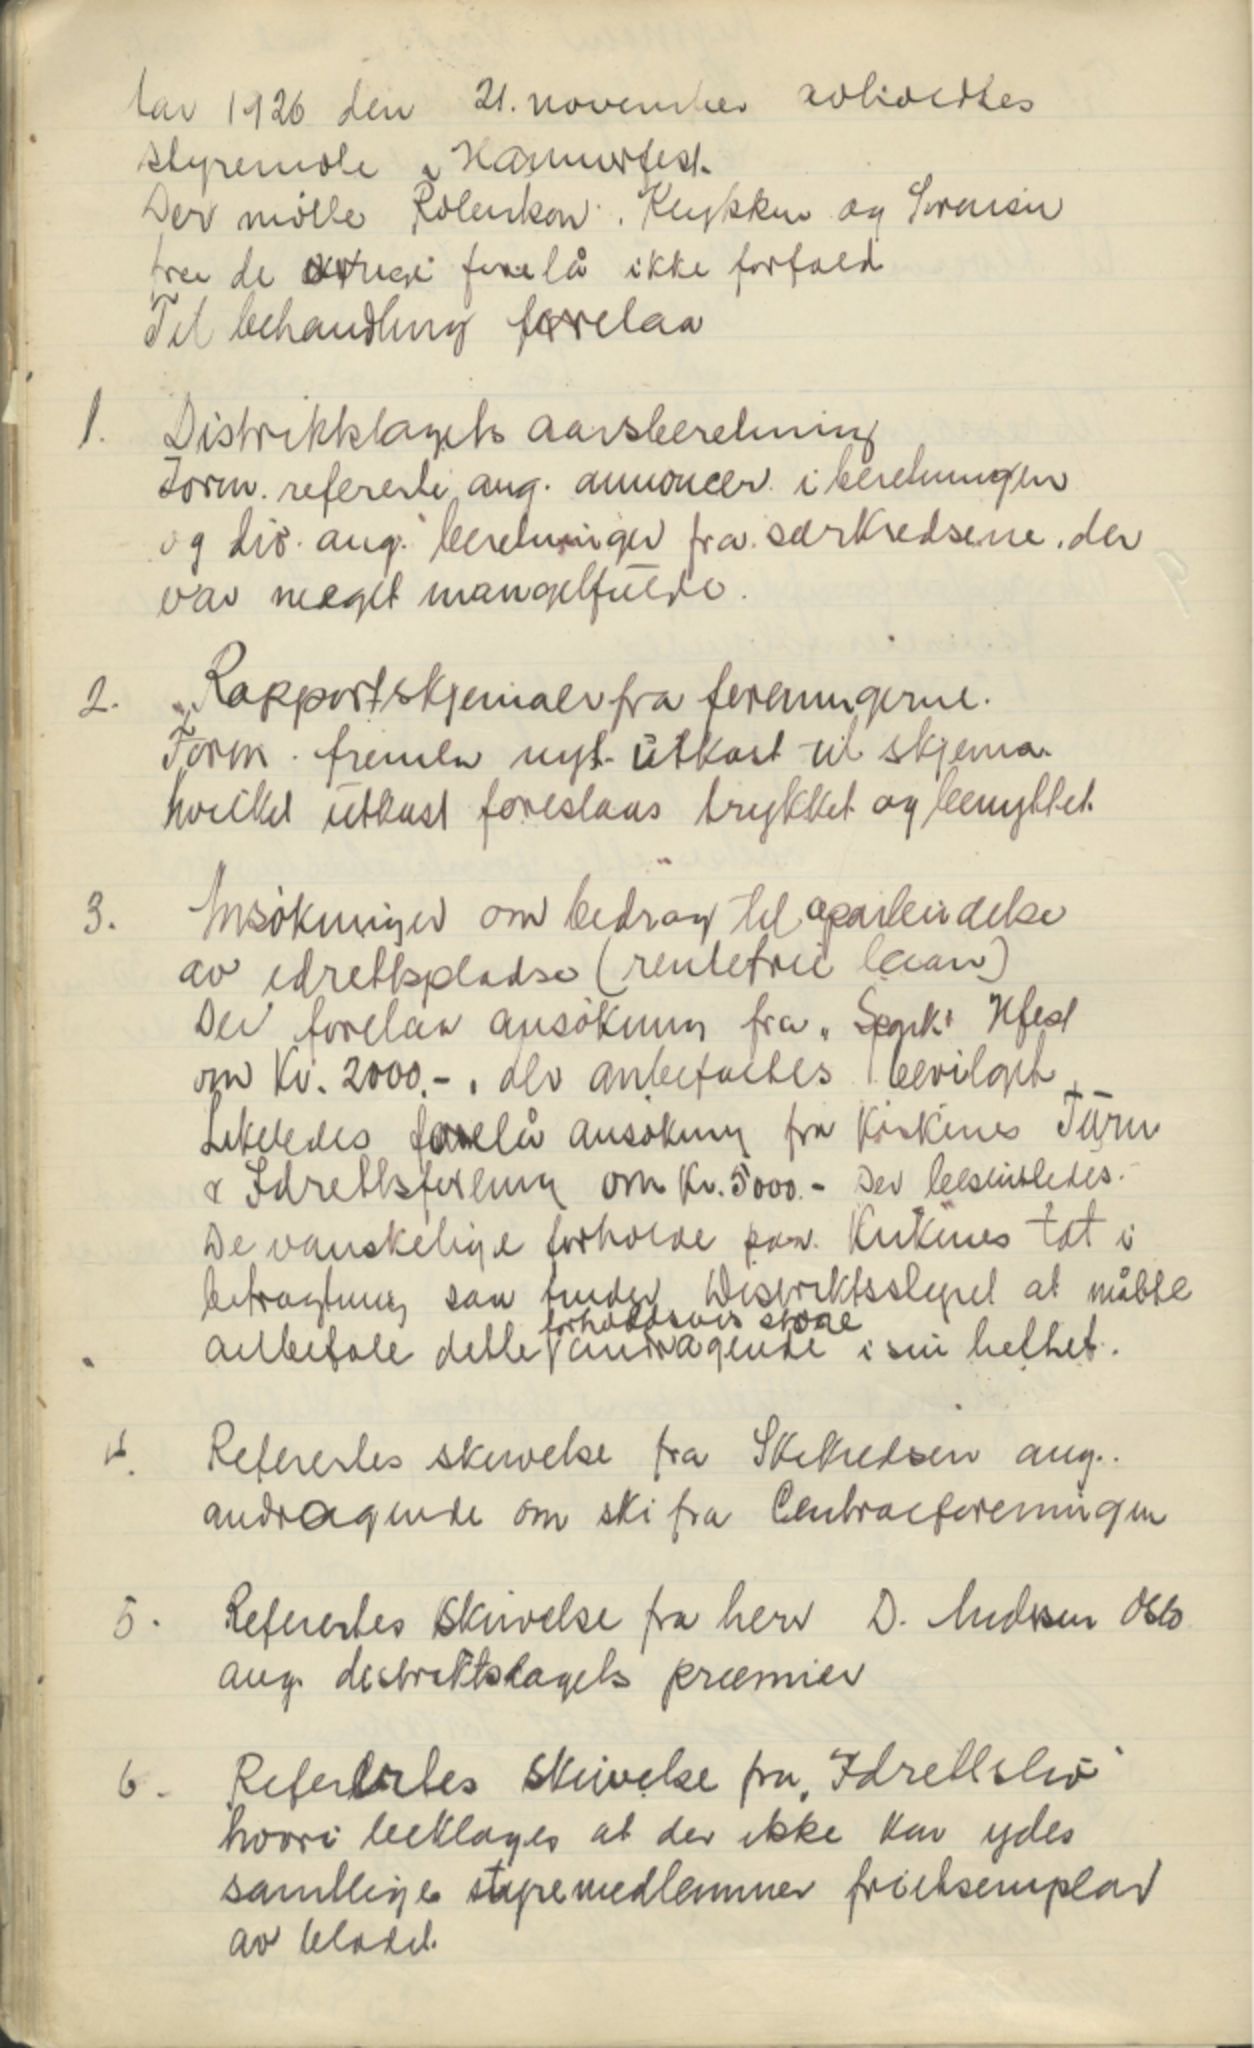 Aar 1926 den 21. november avholdtes
styremøte i Hammerfest.
Der møtte Rolenkow. Krykken og Sørensen
fra de øvrige forelå ikke forfald
Til behandling forelaa
1. Distriktslagets aarsberetning
Form. refererte ang. annoncer i beretningen
og div. ang. beretninger fra særkredsene. der
var meget mangelfulde.
2. Rapportskjemaer fra foreningerne.
Form. fremla nyt utkast til skjema
hvilket utkast foreslaas trykket og benyttet.
3. Ansökninger om bedrag til oparbeidelse
av idrettspladse (rentefrie laan)
Der forelaa ansökning fra "Spark" Hfest
om Kr. 2000.-, der anbefaltes bevilget.
Likeledes forelå ansökning fra Kirkenes Turn
& Idrettsforening om Kr. 5000.- Der besluttedes.
De vanskelige forholde paa Kirkenes tat i
betragtning saa finder Distriktsstyret at måtte
anbefale dette forholdsvis store andragende i sin helhet.
4. Refereres skrivelse fra Skikredsen ang.
andragende om ski fra Centralforeningen
5. Refereres skrivelse fra herr D. Andersen Oslo
ang. distriktslagets præmier
6. Refereres skrivelse fra "Idrettsliv"
hvori beklages at der ikke kan ydes
samtlige styremedlemmer frieksemplar
av bladet.